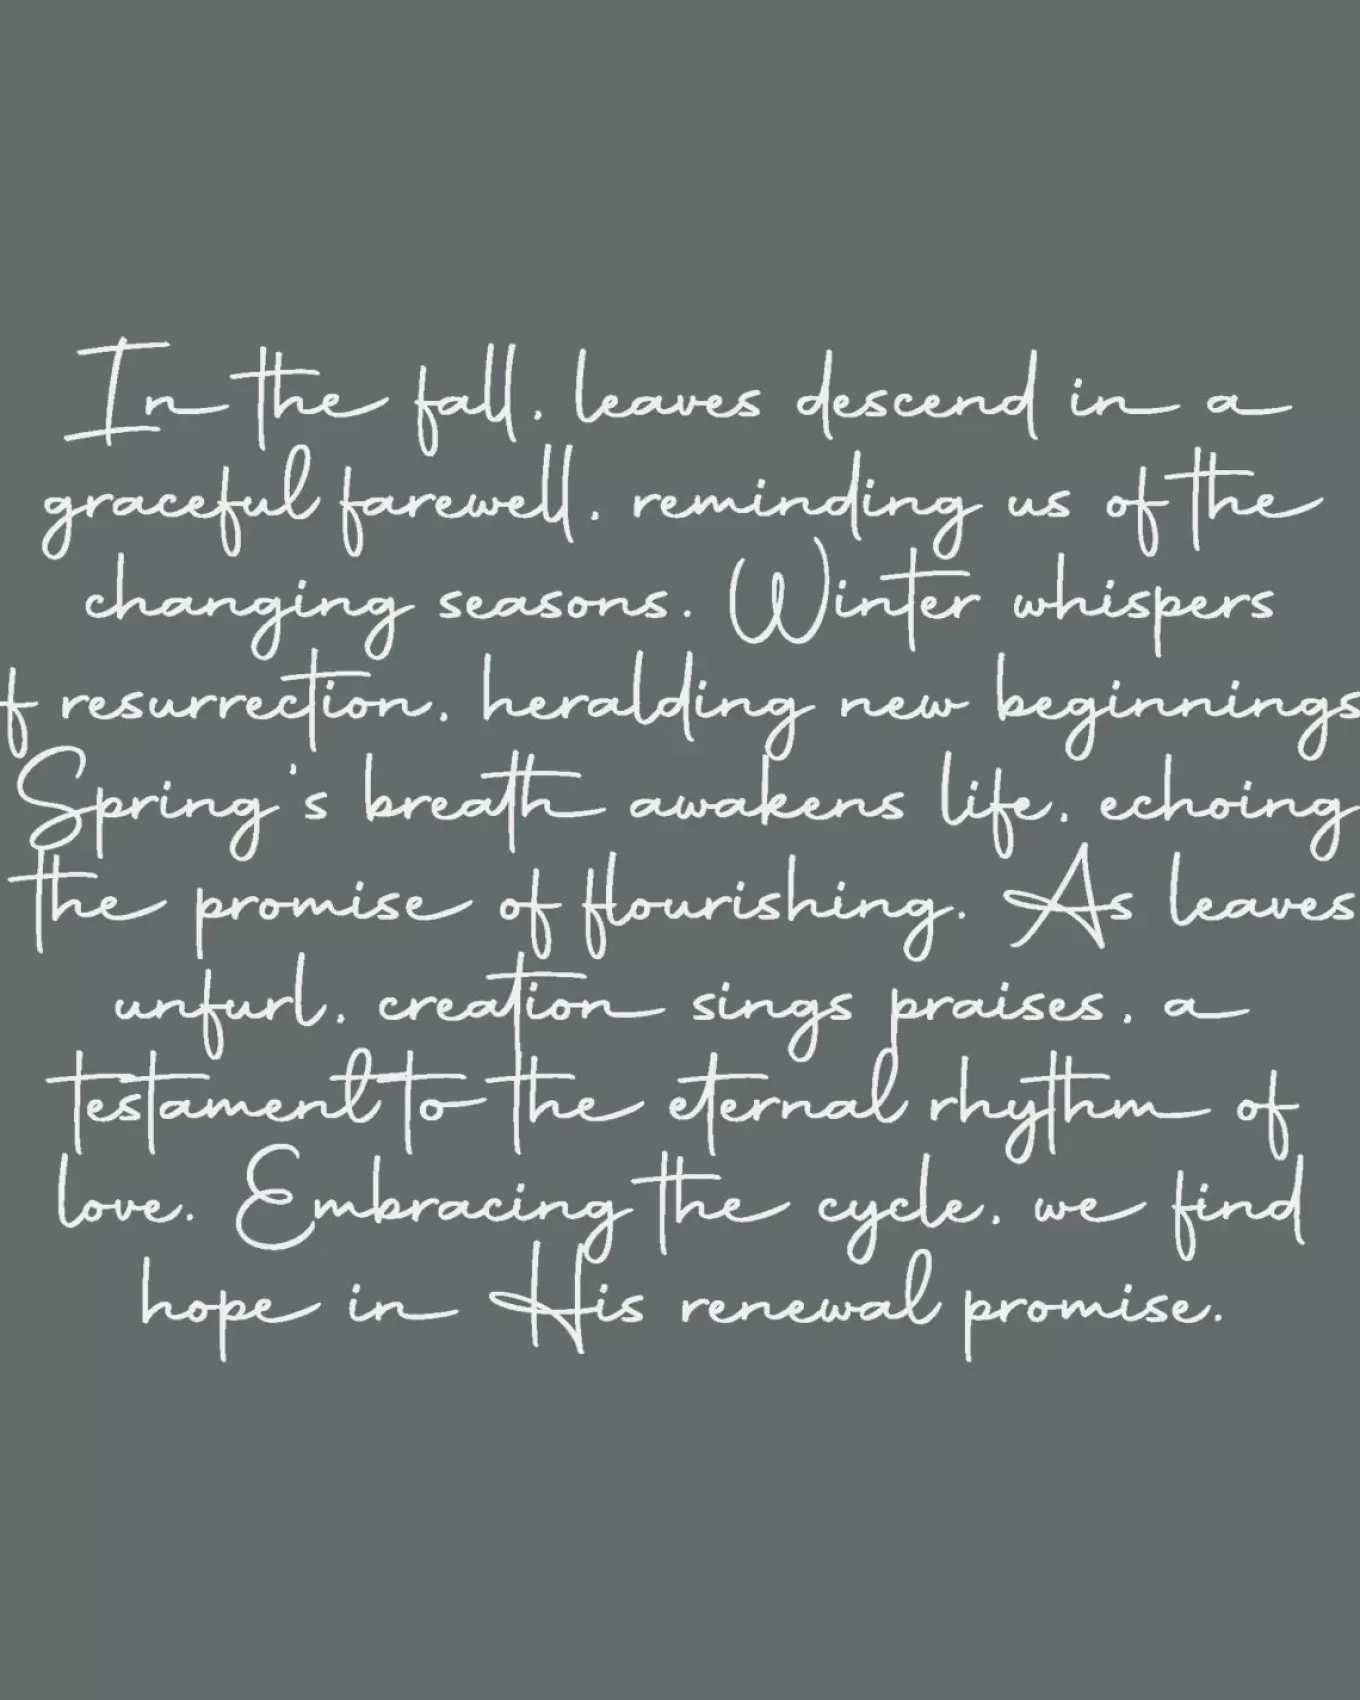 In the fall, leaves descend in a
graceful farewell, reminding us of the
changing seasons. Winter whispers
f resurrection, heralding new beginnings
Spring's breath awakens life, echoing
the promise of flourishing. As leaves
unfurl, creation sings praises, a
testament to the eternal rhythm of
love. Embracing the cycle, we find
hope in His renewal promise.